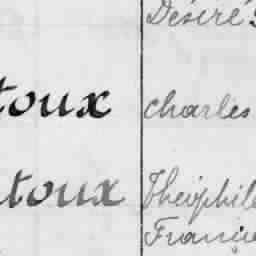 Désiré
toux charles
toux Théophile
Franç